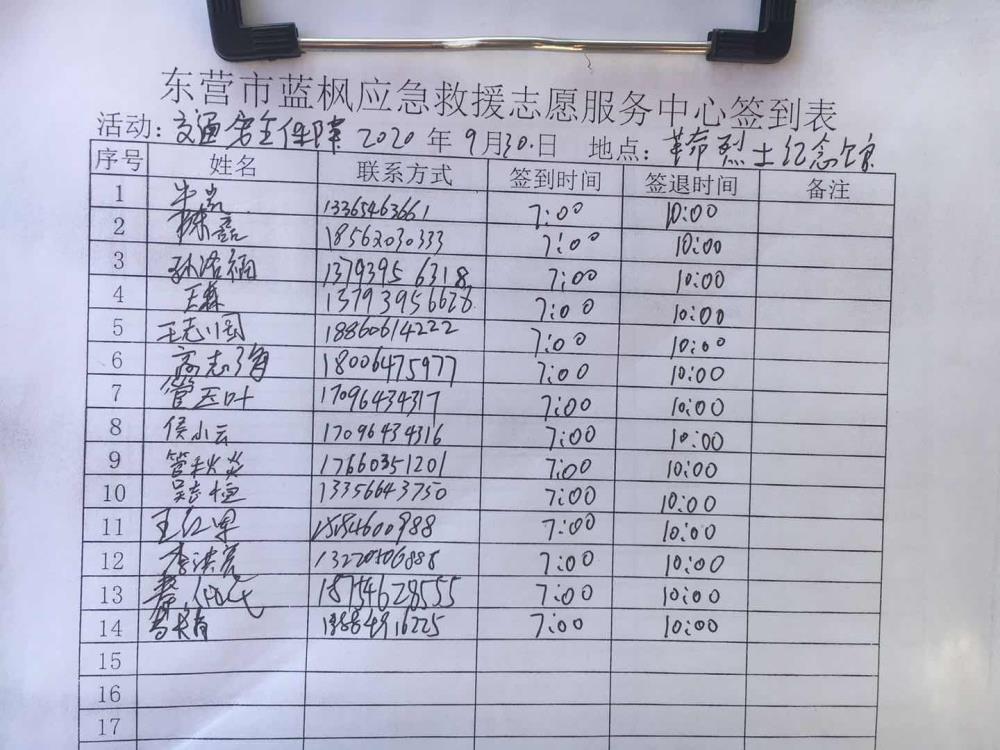 东营市蓝枫应急救援志愿服务中心签到表
活动：交通安全保障 2020 年 9月30日 地点：革命烈士纪念馆
序号 姓名 联系方式 签到时间 签退时间 备注
1 13365463661 7:00 10:00
2 18562030333 7:00 10:00
3 孙浩楠 13793956318 7:00 10:00
4 王森 13793956628 7:00 10:00
5 王志国 18860614222 7:00 10:00
6 高志海 18006475977 7:00 10:00
7 管玉叶 17096434317 7:00 10:00
8 侯小云 17096434316 7:00 10:00
9 管秋炎 17660351201 7:00 10:00
10 吴志恒 13356643750 7:00 10:00
11 王红军 7:00 10:00
12 李洪亮 7:00 10:00
13 18754628555 7:00 10:00
14 7:00 10:00
15
16
17